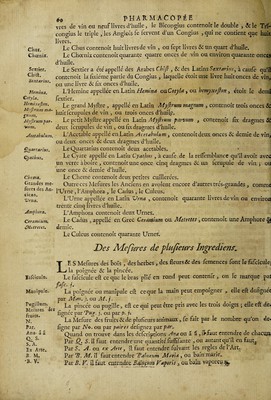 60 PHARMACOPÉE
vres de vin ou neuf livres d'huile, le Bicongius contenoit le double, & le Tri-
congius le triple, les Anglois se servent d'un Congius, qui ne contient que huit
livres.
Chus. Le Chus contenoit huit livres de vin, ou sept livres & un quart d'huile.
Choenix. Le Choenix contenoit quarante quatre onces de vin ou environ quarante onces
d'huile.
Sextier. Le Sextier a été appellé des Arabes Chist, & des Latins Sextarius, à cause qu'il
Chist. contenoit la sixiéme partie du Congius, laquelle étoit une livre huit onces de vin,
Sextarius. ou une livre & six onces d'huile.
Hemina. L'Hemine appellé en Latin Hemina ou Cotyla, ou hemyxestion, étoit le demi
Cotyla. Sextier.
Hemixestion. Le grand Mystre, appellé en Latin Mystrum magnum, contenoit trois onces &
Mistrum magnum. huit scrupules de vin, ou trois onces d'huile.
Mistrum parvum. Le petit Mystre appellé en Latin Mystrum parvum, contenoit six dragmes &
deux scrupules de vin, ou six dragmes d'huile.
Acetabulum. L'Acetable appellé en Latin Acetabulum, contenoit deux onces & demie de vin,
ou deux onces & deux dragmes d'huile.
Quartarius. Le Quartarius contenoit deux acetables.
Cyathus. Le Cyate appellé en Latin Cyathus, à cause de la ressemblance qu'il avoit avec
un verre à boire, contenoit une once cinq dragmes & un scrupule de vin, ou
une once & demie d'huile.
Chema. Le Cheme contenoit deux petites cuillerées.
Grandes mesures des Anciens. Outre ces Mesures les Anciens en avoient encore d'autres très-grandes, comme
l'Urne, l'Amphora, le Cadus, le Culeus.
Urna. L'Urne appellée en Latin Urna, contenoit quarante livres de vin ou environ
trente cinq livres d'huile.
Amphora. L'Amphora contenoit deux Urnes.
Ceramium. Le Cadus, appellé en Grec Ceramium ou Metretes, contenoit une Amphore &
Metretes. demie.
Le Culeus contenoit quarante Urnes.
Des Mesures de plusieurs Ingrediens.
LES Mesures des bois, des herbes, des fleurs & des semences sont la fascicule,
la poignée & la pincée.
Fasciculus. La fascicule est ce que le bras plié en rond peut contenir, on le marque par
fasc. j.
Manipulus. La poignée ou manipule est ce que la main peut empoigner, elle est designée
par Man. j. ou M. j.
Pugillum. La pincée ou pugille, est ce qui peut être pris avec les trois doigts; elle est de-
Mesures des fruits. signée par Pug. j. ou par p. j.
N. La Mesure des fruits & de plusieurs animaux, se fait par le nombre qu'on de-
Par. signe par No. ou par paires designez par par.
Ana Quand on trouve dans les descriptions Ana ou āā, il faut entendre de chacun.
Q. S. Par Q. S. il faut entendre une quantité suffisante, ou autant qu'il en faut.
S. A. Par S. A. ou ex Arte, il faut entendre suivant les regles de l'Art.
B. M. Par B. M. il faut entendre Balneum Maria, ou bain marie.
B. V. Par B. V. il faut entendre Balneum Vaporis, ou bain vaporeux.